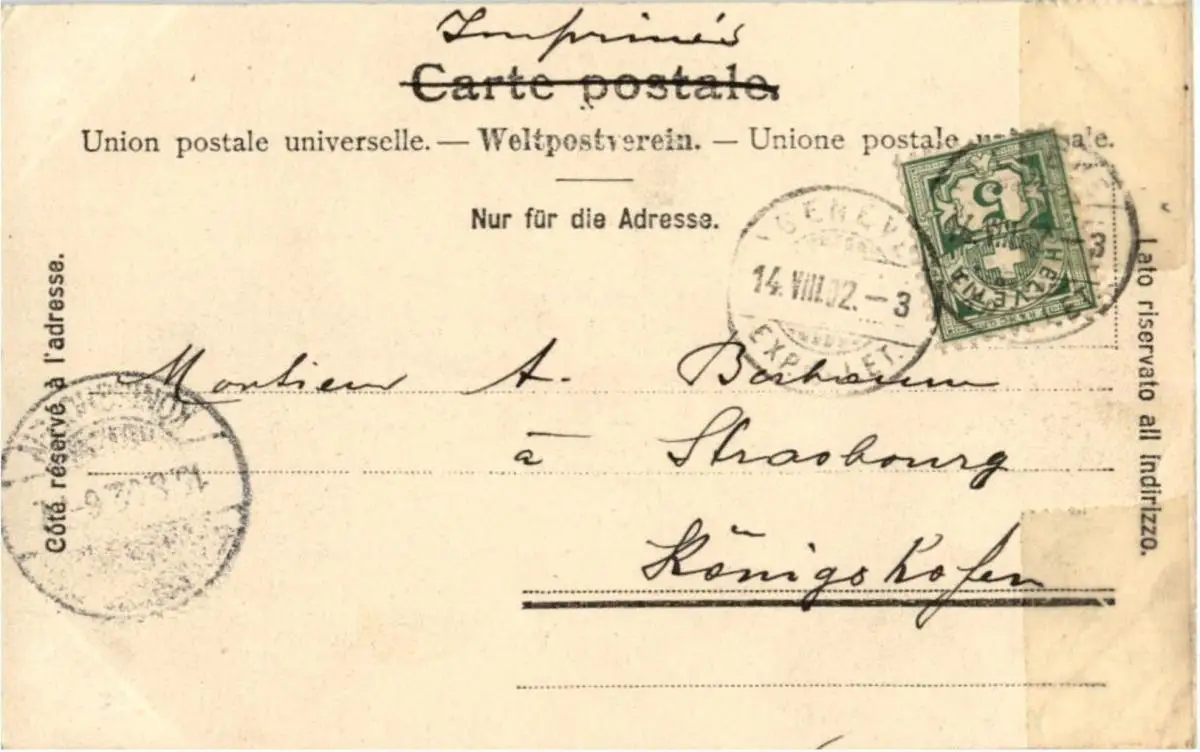 Imprimés
Carte postale.
Union postale universelle. — Weltpostverein. — Unione postale universale.
Nur für die Adresse.
Côté réservé à l'adresse.
Lato riservato all indirizzo.
5
HELVETIA
GENÈVE
14.VIII.02. — 3
EXP. LET.
3
Monsieur A.
à Strasbourg
Königshofen